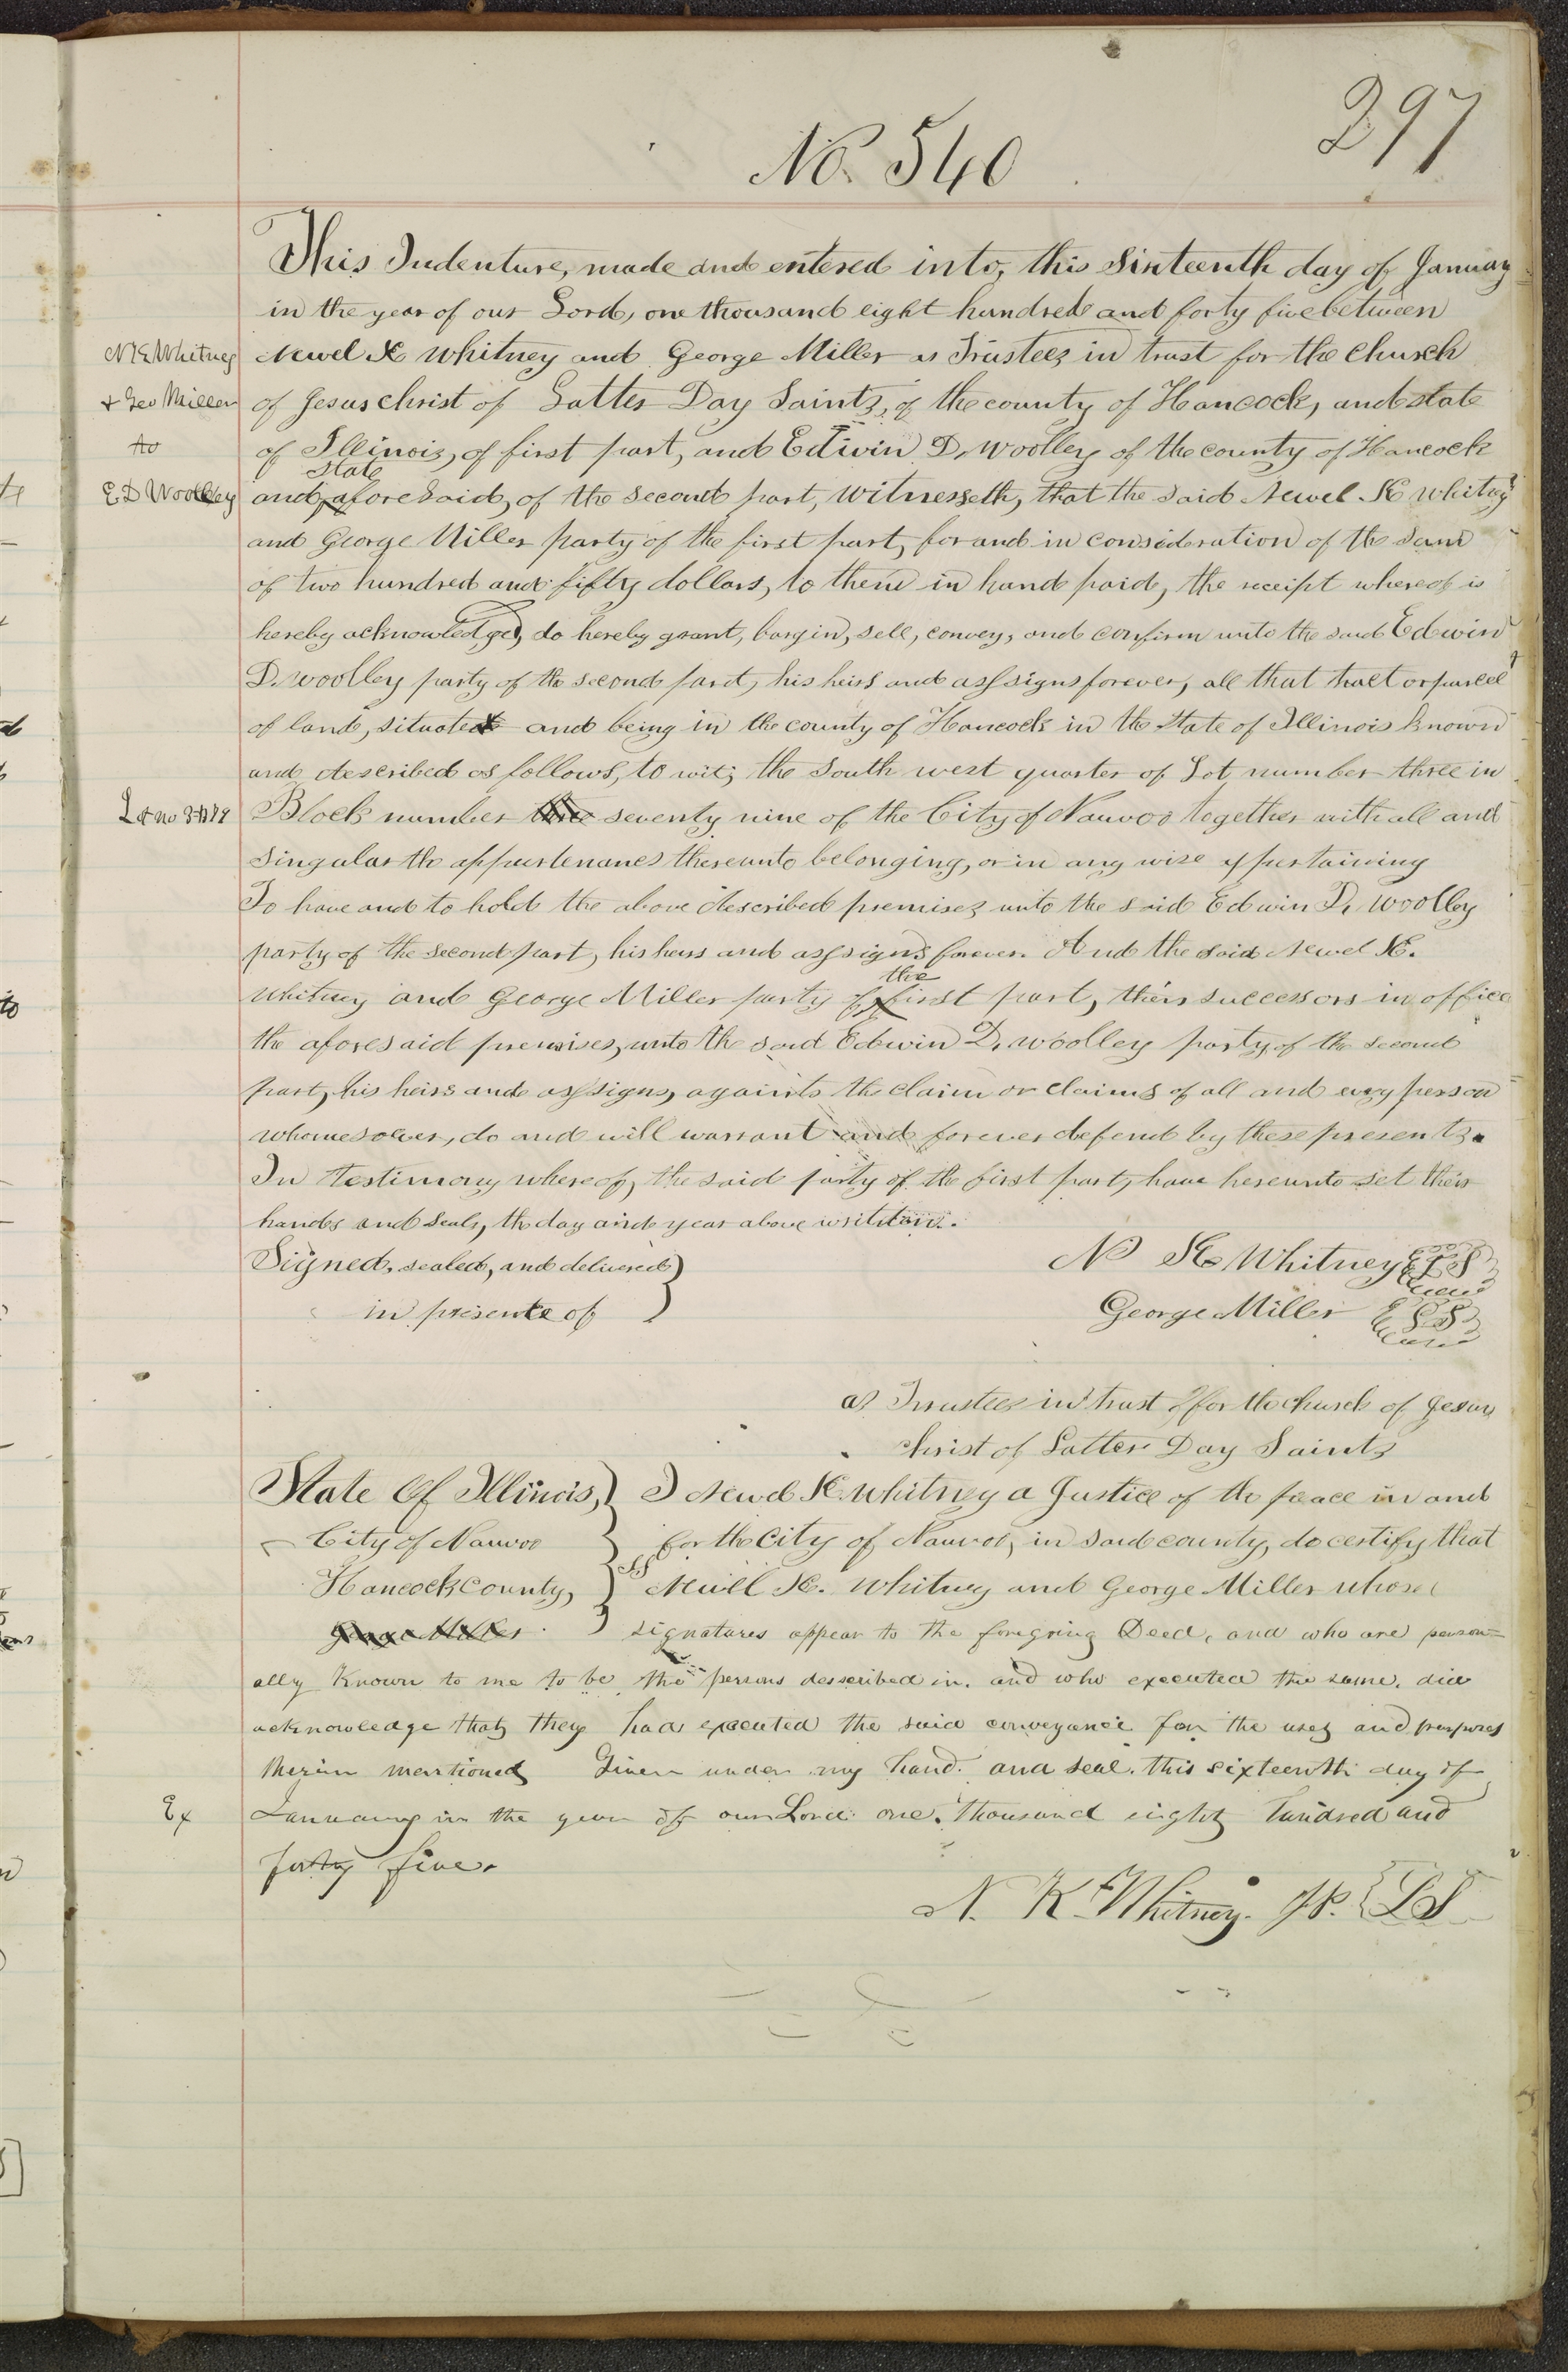 297
No. 540
This Indenture, made and entered into, this Sixteenth day of January
in the year of our Lord, one thousand eight hundred and forty five between
N K Whitney
Newel K Whitney and George Miller as Trustees in trust for the church
+ Geo Miller
of Jesus christ of Latter Day Saints, of the county of Hancock, and state
to
of Illinois, of first part, and Edwin D. Woolley of the county of Hancock
state
E D Woolley
and aforesaid, of the second part, witnesseth, that the said Newel K Whitny
and George Miller party of the first part, for and in consideration of the sum
of two hundred and fifty dollars, to them in hand paid, the receipt whereof is
hereby acknowledged, do hereby grant, bargin, sell, convey, and confirm unto the said Edwin
D. Woolley party of the second part, his heirs and assigns forever, all that tract or parcel
of land, situated and being in the county of Hancock in the State of Illinois known
and described as follows, to wit; the South west quarter of Lot number three in
Lot no 3 B 79
Block number three seventy nine of the City of Nauvoo together with all and
Singular the appurtenances thereunto belonging, or in any wise appertaining
To have and to hold the above described premises unto the said Edwin D. Woolley
party of the second part, his heirs and assigns forever. And the said Newel K.
the
Whitney and George Miller party of first part, their successors in office
the aforesaid premises, unto the said Edwin D. Woolley party of the second
part, his heirs and assigns, againts the claim or claims of all and every person
whomesoever, do and will warrant and forever defend by these presents.
In testimony whereof, the said party of the first part, have hereunto set their
hands and seals, the day and year above written.
Signed, sealed, and delivered } N K Whitney LS
in presente of } George Miller LS
as Trustees in trust for the church of Jesus
christ of Latter Day Saints
State Of Illinois, } I Newel K. Whitney a Justice of the peace in and
City of Nauvoo } for the City of Nauvoo, in said county, do certify that
Hancock County, } SS Newell K. Whitney and George Miller whose
George Miller } signatures appear to the foregoing Deed, and who are person=
ally Known to me to be the persons desscribed in. and who executed the same. did
acknowledge that they had executed the said conveyance for the uses and purposes
therein mentioned Given under my hand. and seal. this sixteenth day of
Ex
January in the year of our Lord one. thousand eight hundred and
forty five.
N. K. Whitney. J.P. {LS